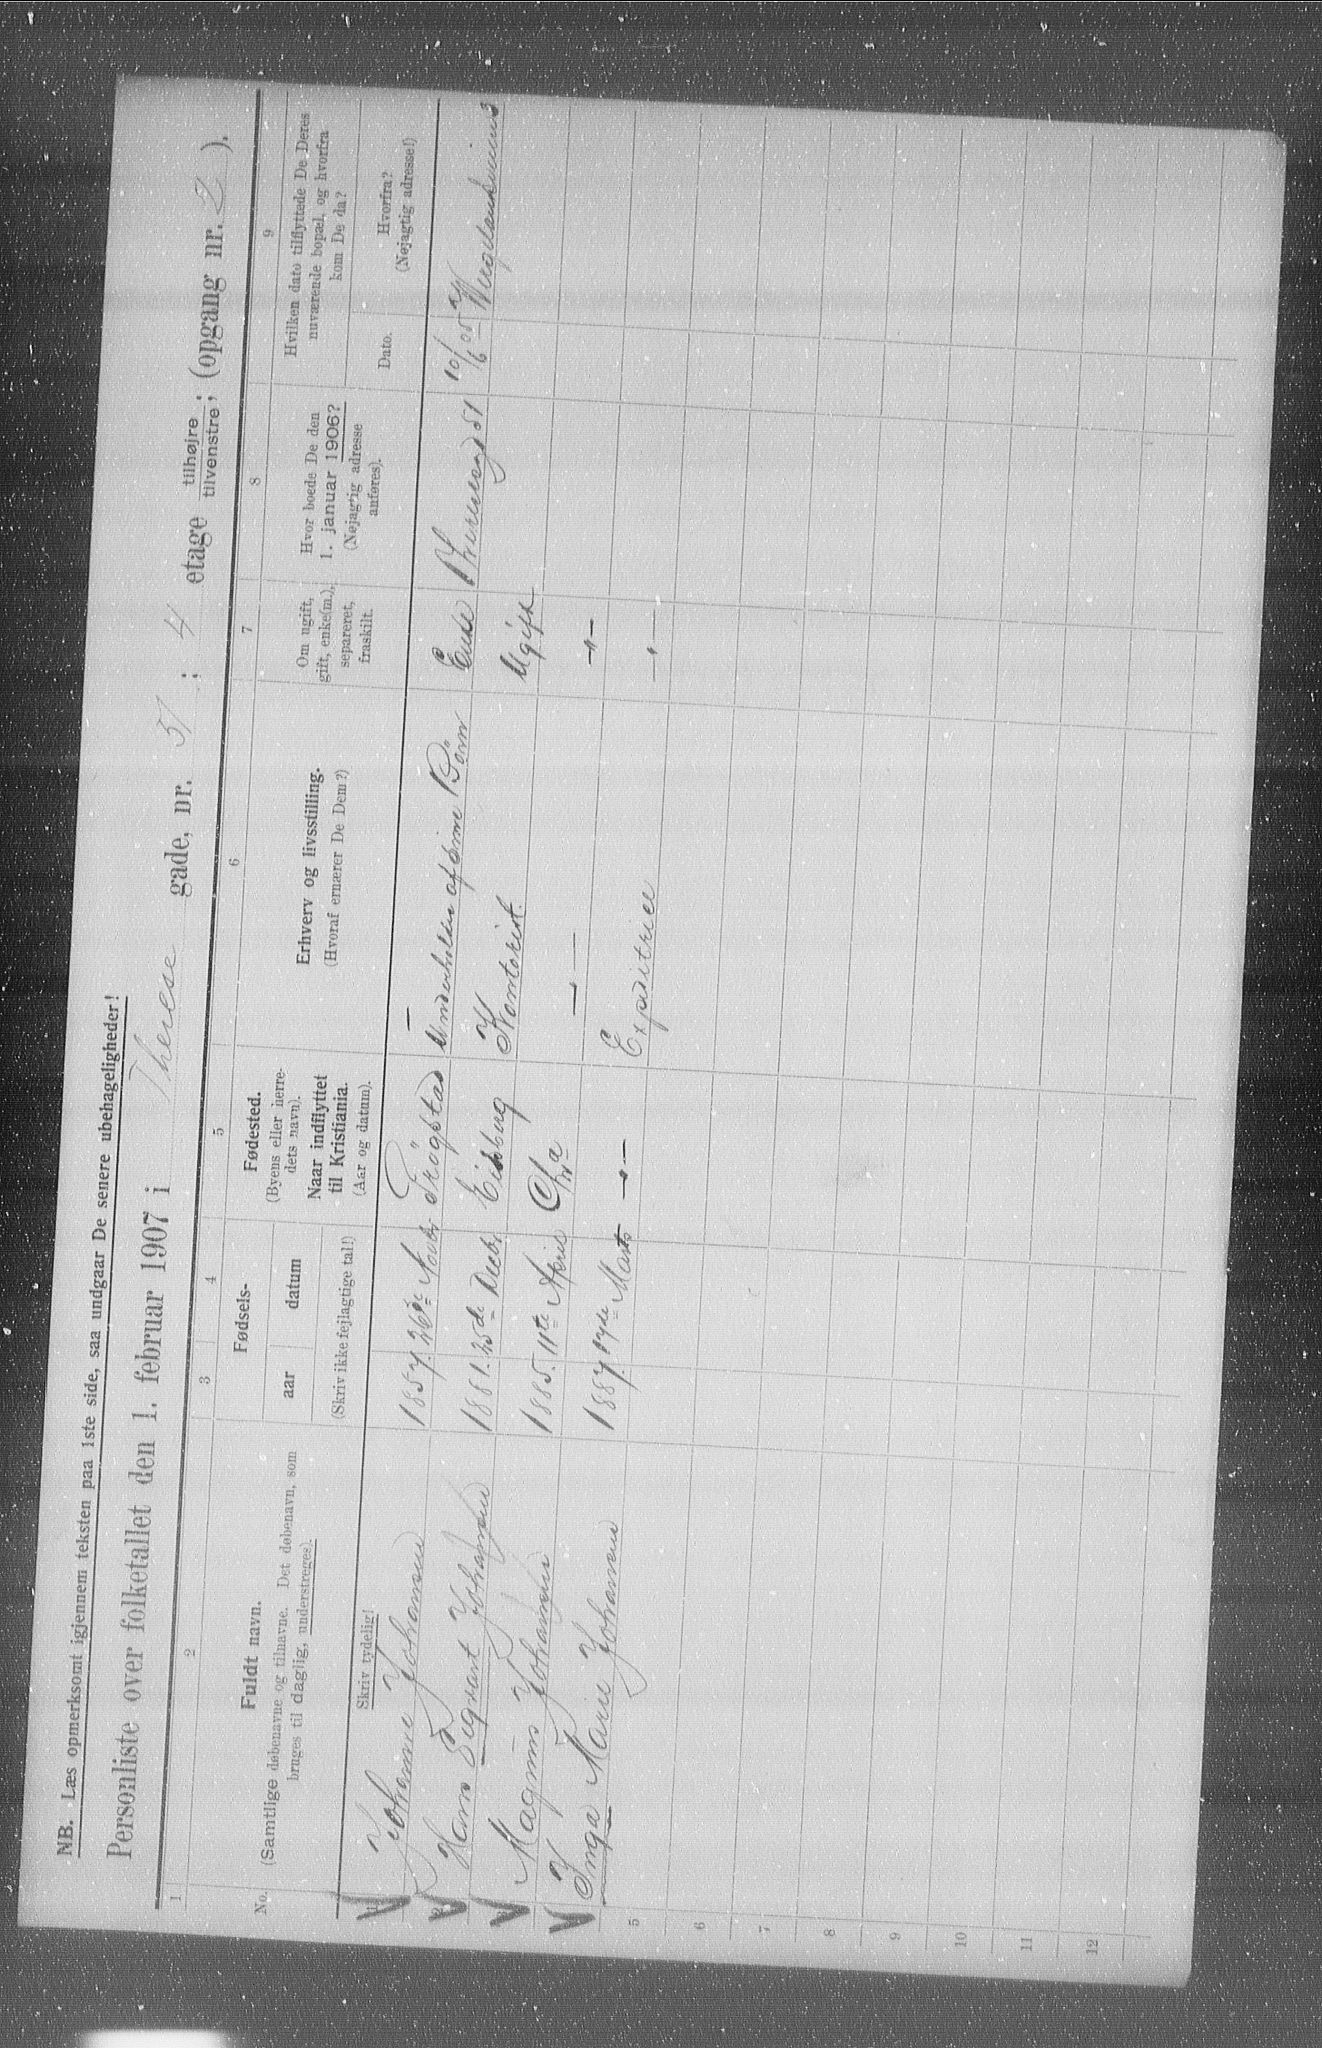 NB. Læs opmerksomt igjennem teksten paa 1ste side, saa undgaar De senere ubehageligheder!
Personliste over folketallet den 1. februar 1907 i Therese gade, nr. 51 ; 4 etage tilhøjre tilvenstre ; (opgang nr. 2 ).
1 2 3 4 5 6 7 8 9
No.
Fuldt navn.
(Samtlige døbenavne og tilnavne. Det døbenavn, som
bruges til daglig, understreges).
Skriv tydelig!
Fødsels-
aar datum
(Skriv ikke fejlagtige tal!)
Fødested.
(Byens eller herre-
dets navn).
Naar indflyttet
til Kristiania.
(Aar og datum).
Erhverv og livsstilling.
(Hvoraf ernærer De Dem?)
Om ugift,
gift, enke(m.),
separeret,
fraskilt.
Hvor boede De den
1. januar 1906?
(Nøjagtig adresse
anføres).
Hvilken dato tilflyttede De Deres
nuværende bopæl, og hvorfra
kom De da?
Dato.
Hvorfra?
(Nøjagtig adresse!)
1 Johanne Johansen 1857. 26de Novbr Trögstad Underholdes af sine Börn Enke Theresegd 51 10/6 05
2 Hans Sigvart Johansen 1881. 25de Decbr Eidsberg Kontorist. Ugift
3 Magnus Johansen 1885. 11te April Chra — " — — " —
Inga Marie Johansen 1887. 17de Marts — " — Expeditrice — " —
5
6
7
8
9
10
11
12